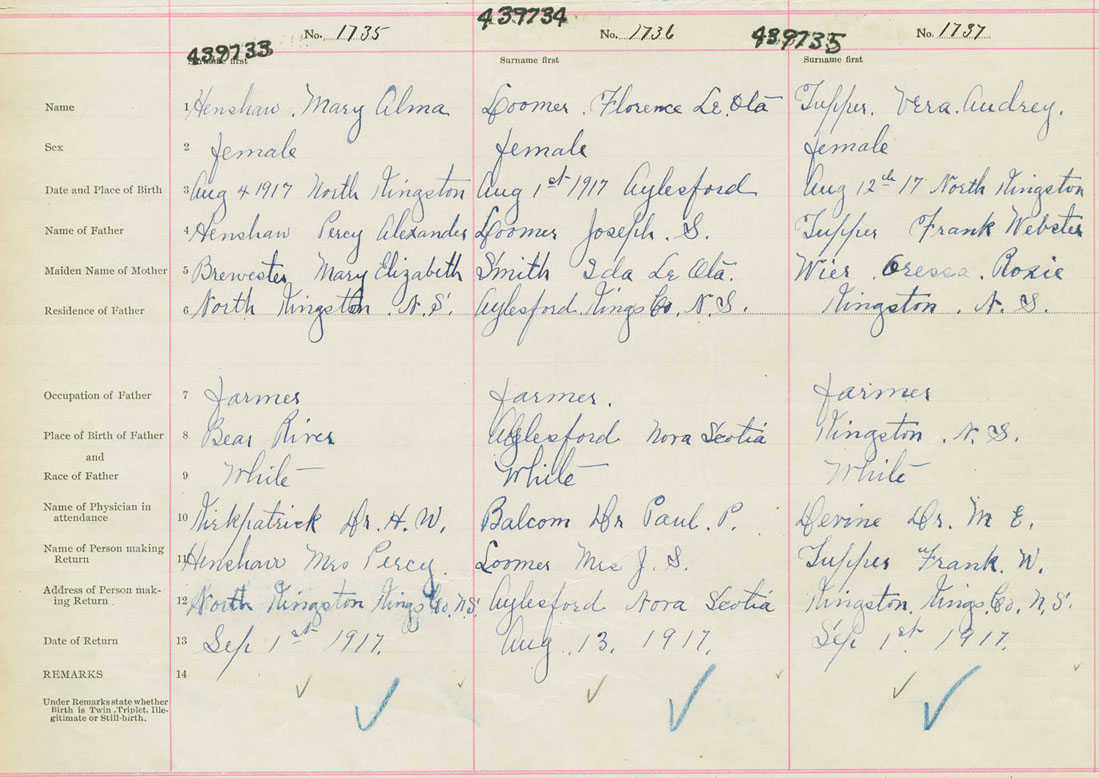 439733 No. 1735 439734 No. 1736 439735 No. 1737
Surname first Surname first Surname first
Name 1 Henshaw. Mary Alma Loomer. Florence Le Ota Tupper. Vera Audrey.
Sex 2 female female female
Date and Place of Birth 3 Aug 4 1917 North Kingston Aug 1st 1917 Aylesford Aug 12th 17 North Kingston
Name of Father 4 Henshaw Percy Alexander Loomer Joseph. S. Tupper Frank Webster
Maiden Name of Mother 5 Brewester Mary Elizabeth Smith Ida Le Ota. Wier Oressa. Roxie
Residence of Father 6 North Kingston. N.S. Aylesford Kings Co. N.S. Kingston. N.S.
Occupation of Father 7 farmer farmer. farmer
Place of Birth of Father 8 Bear River Aylesford Nova Scotia Kingston. N.S.
and
Race of Father 9 White White White
Name of Physician in
attendance 10 Kirkpatrick Dr. H. W. Balcom Dr Paul. P. Devine Dr. M E.
Name of Person making
Return 11 Henshaw Mrs Percy. Loomer Mrs J. S. Tupper Frank. W.
Address of Person mak-
ing Return 12 North Kingston Kings Co. N.S. Aylesford Nova Scotia Kingston. Kings. Co. N.S.
Date of Return 13 Sep 1st 1917. Aug. 13. 1917. Sep 1st 1917.
REMARKS 14
Under Remarks state whether
Birth is Twin, Triplet, Ille-
gitimate or Still-birth.